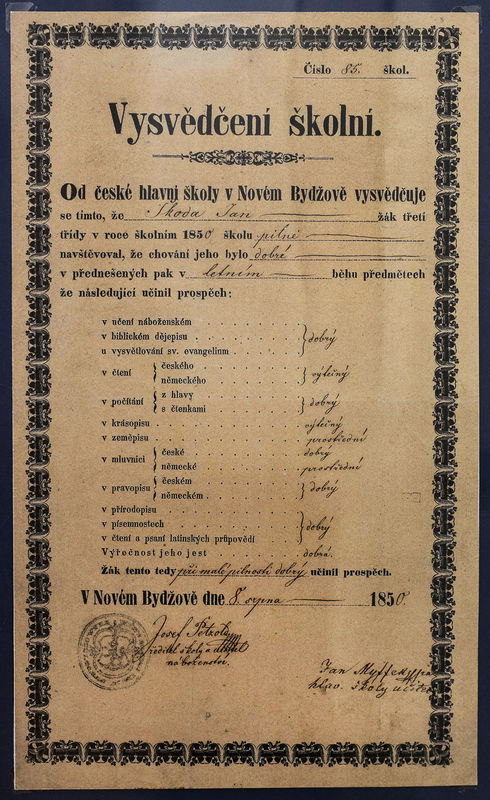 Číslo 85. škol.
Vysvědčení školní.
Od české hlavni školy v Novém Bydžově vysvědčuje
se tímto, že Škoda Jan žák třetí
třídy v roce školním 1850 školu pilně
navštěvoval, že chování jeho bylo dobré
v přednešených pak v letném běhu předmětech
že následující učinil prospěch:
v učení náboženském
v biblickém dějepisu
u vysvětlování sv. evangelium
dobrý
v čtení českého
německého
výtečný
v počítání z hlavy
s čtenkami
dobrý
v krásopisu výtečný
v zeměpisu prostřední
v mluvnici české dobrý
německé prostřední
v pravopisu českém
německém
dobrý
v přírodopisu
v písemnostech
v čtení a psaní latinských průpovědí
dobrý
Výřečnost jeho jest dobrá.
Žák tento tedy při malé pilnosti dobrý učinil prospěch.
V Novém Bydžově dne 8. srpna 1850.
Josef
ředitel školy a
náboženství.
Jan
hlav. školy učitel